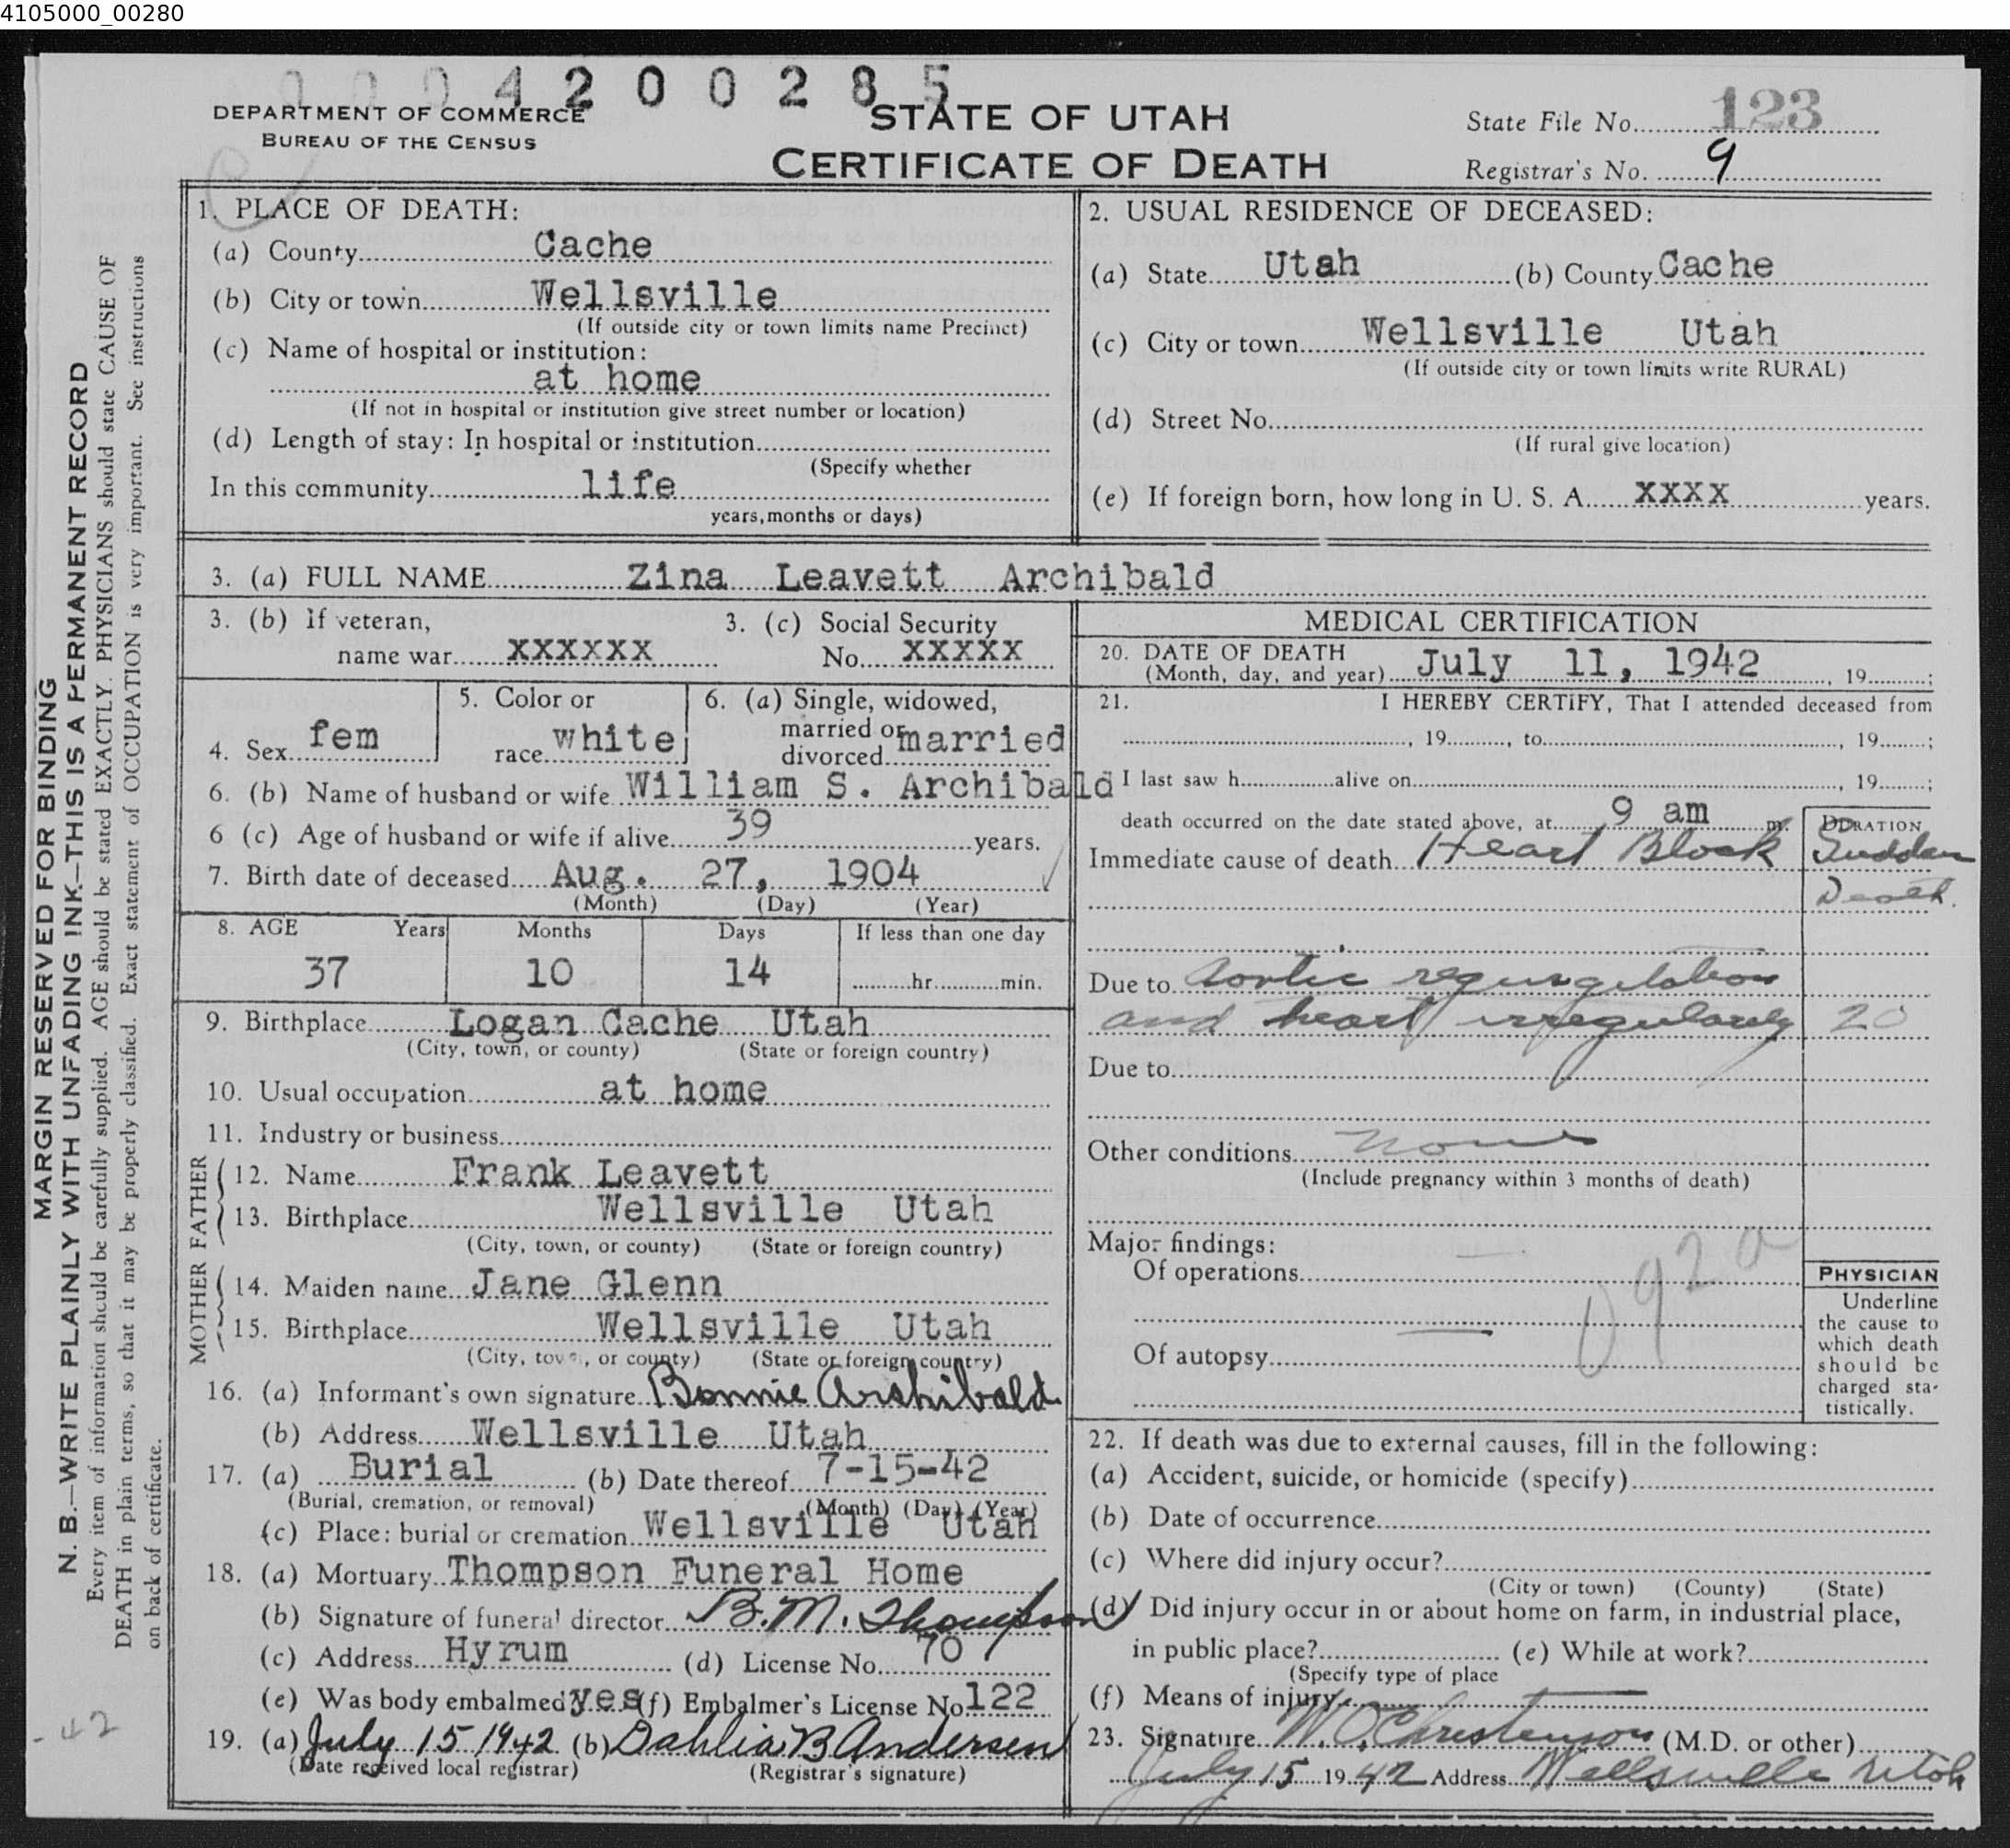 4105000_00280
0004200285
DEPARTMENT OF COMMERCE
BUREAU OF THE CENSUS
STATE OF UTAH
CERTIFICATE OF DEATH
State File No. 123
Registrar's No. 9
MARGIN RESERVED FOR BINDING
N. B.—WRITE PLAINLY WITH UNFADING INK—THIS IS A PERMANENT RECORD
Every item of information should be carefully supplied. AGE should be stated EXACTLY. PHYSICIANS should state CAUSE OF
DEATH in plain terms, so that it may be properly classified. Exact statement of OCCUPATION is very important. See instructions
on back of certificate.
1. PLACE OF DEATH:
(a) County Cache
(b) City or town Wellsville
(If outside city or town limits name Precinct)
(c) Name of hospital or institution:
at home
(If not in hospital or institution give street number or location)
(d) Length of stay: In hospital or institution
(Specify whether
In this community life
years, months or days)
2. USUAL RESIDENCE OF DECEASED:
(a) State Utah (b) County Cache
(c) City or town Wellsville Utah
(If outside city or town limits write RURAL)
(d) Street No.
(If rural give location)
(e) If foreign born, how long in U. S. A. XXXX years.
3. (a) FULL NAME Zina Leavett Archibald
3. (b) If veteran,
name war XXXXXX
3. (c) Social Security
No. XXXXX
4. Sex fem
5. Color or
race white
6. (a) Single, widowed,
married or
divorced married
6. (b) Name of husband or wife William S. Archibald
6 (c) Age of husband or wife if alive 39 years.
7. Birth date of deceased Aug. 27, 1904
(Month) (Day) (Year)
8. AGE Years Months Days If less than one day
37 10 14 hr. min.
9. Birthplace Logan Cache Utah
(City, town, or county) (State or foreign country)
10. Usual occupation at home
11. Industry or business
FATHER
12. Name Frank Leavett
13. Birthplace Wellsville Utah
(City, town, or county) (State or foreign country)
MOTHER
14. Maiden name Jane Glenn
15. Birthplace Wellsville Utah
(City, town, or county) (State or foreign country)
16. (a) Informant's own signature Bonnie Archibald
(b) Address Wellsville Utah
17. (a) Burial (b) Date thereof 7-15-42
(Burial, cremation, or removal) (Month) (Day) (Year)
(c) Place: burial or cremation Wellsville Utah
18. (a) Mortuary Thompson Funeral Home
(b) Signature of funeral director B. M. Thompson
(c) Address Hyrum (d) License No. 70
(e) Was body embalmed yes (f) Embalmer's License No 122
19. (a) July 15 1942 (b) Dahlia B Andersen
(Date received local registrar) (Registrar's signature)
-42
MEDICAL CERTIFICATION
20. DATE OF DEATH
(Month, day, and year) July 11, 1942, 19 ;
21. I HEREBY CERTIFY, That I attended deceased from
, 19 , to , 19 ;
I last saw h alive on , 19 ;
death occurred on the date stated above, at 9 am m.
DURATION
Immediate cause of death Heart Block Sudden
Death.
Due to Aortic regurgitation
and heart irregularity 20
Due to
Other conditions None
(Include pregnancy within 3 months of death)
Major findings:
Of operations —
Of autopsy —
092a
PHYSICIAN
Underline
the cause to
which death
should be
charged sta-
tistically.
22. If death was due to external causes, fill in the following:
(a) Accident, suicide, or homicide (specify)
(b) Date of occurrence
(c) Where did injury occur?
(City or town) (County) (State)
(d) Did injury occur in or about home on farm, in industrial place,
in public place? (e) While at work?
(Specify type of place
(f) Means of injury
23. Signature W. O. Christenson (M.D. or other)
July 15 1942 Address Wellsville Utah